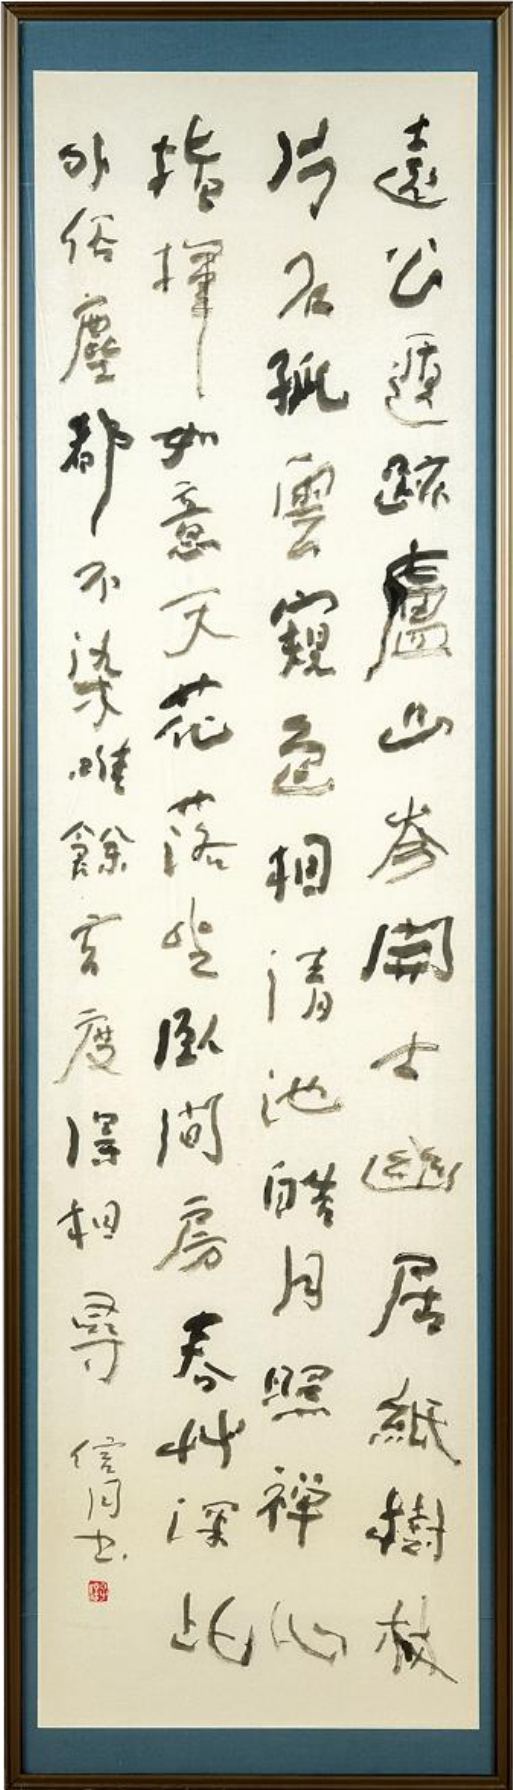 遠公遯跡廬山岑開士幽居祇樹林
片石孤雲窺色相清池皓月照禪心
指揮如意天花落坐臥閒房春艸深此
外俗塵都不染唯餘玄度得相尋 信 書